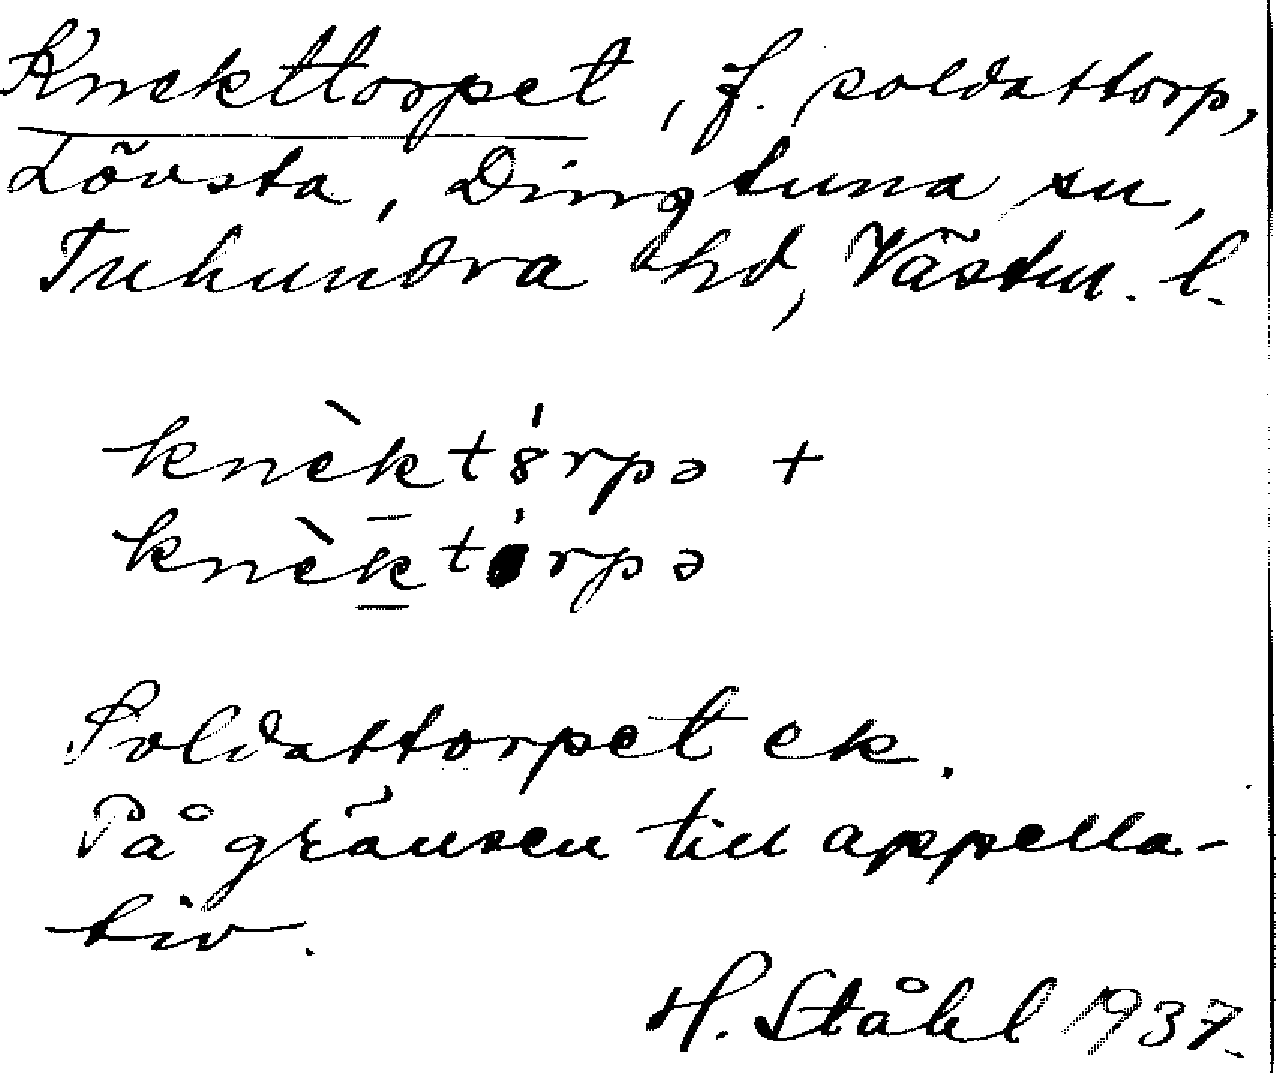 Knekttorpet, f. soldattorp,
Lövsta, Dingtuna sn,
Tuhundra hd, Västm. l.
knèktórpə +
knèktórpə
Soldattorpet ek.
På gränsen till appella-
tiv.
H. Ståhl 1937.